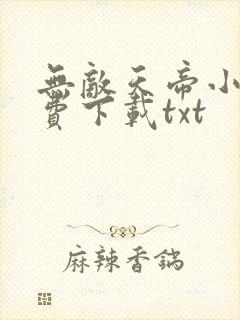 無敵天帝小
費下載txt
麻辣香鍋